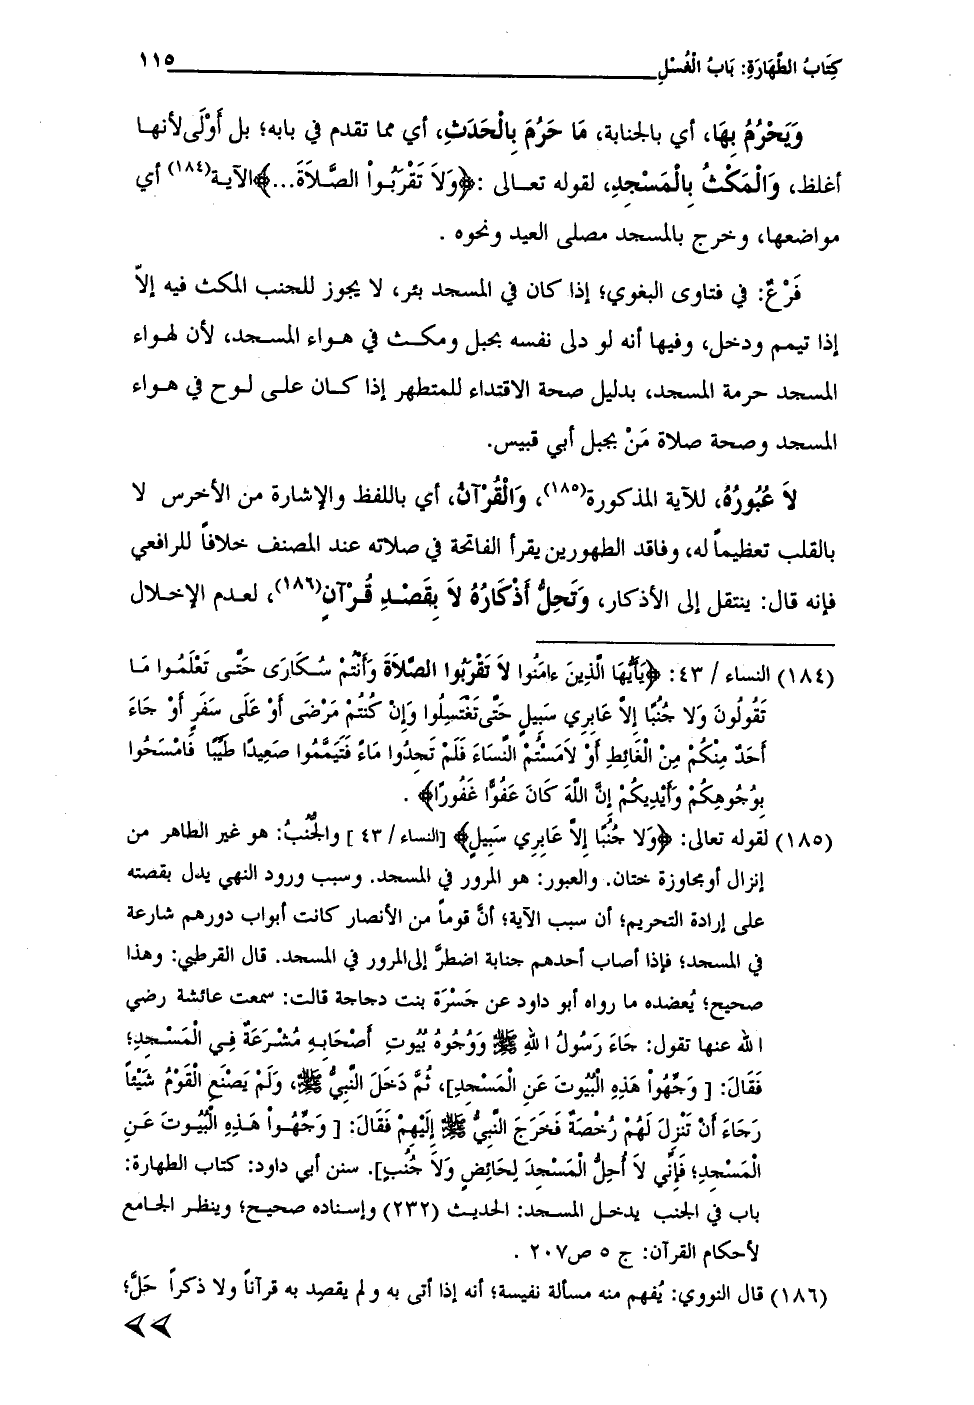 كِتَابُ الطَّهَارَةِ: بَابُ الْغُسْلِ ١١٥
وَيَحْرُمُ بِهَا، أي بالجنابة، مَا حَرُمَ بِالْحَدَثِ، أي مما تقدم في بابه؛ بل أَوْلَى لأنها
أغلظ، وَالْمَكْثُ بِالْمَسْجِدِ، لقوله تعالى: ﴿وَلاَ تَقْرَبُواْ الصَّلاَةَ...﴾الآية(١٨٤) أي
مواضعها، وخرج بالمسجد مصلى العيد ونحوه .
فَرْعٌ: في فتاوى البغوي؛ إذا كان في المسجد بئر، لا يجوز للجنب المكث فيه إلاّ
إذا تيمم ودخل، وفيها أنه لو دلى نفسه بحبل ومكث في هواء المسجد، لأن لهواء
المسجد حرمة المسجد، بدليل صحة الاقتداء للمتطهر إذا كان على لوح في هواء
المسجد وصحة صلاة مَنْ بجبل أبي قبيس.
لاَ عُبُورُهُ، للآية المذكورة(١٨٥)، وَالْقُرْآنُ، أي باللفظ والإشارة من الأخرس لا
بالقلب تعظيماً له، وفاقد الطهورين يقرأ الفاتحة في صلاته عند المصنف خلافاً للرافعي
فإنه قال: ينتقل إلى الأذكار، وَتَحِلُّ أَذْكَارُهُ لاَ بِقَصْدِ قُرْآنٍ(١٨٦)، لعدم الإخلال
(١٨٤) النساء / ٤٣: ﴿يَأَيُّهَا الَّذِينَ ءَامَنُوا لاَ تَقْرَبُوا الصَّلاَةَ وَأَنْتُمْ سُكَارَى حَتَّى تَعْلَمُوا مَا
تَقُولُونَ وَلا جُنُبًا إِلاَّ عَابِرِي سَبِيلٍ حَتَّى تَغْتَسِلُوا وَإِنْ كُنْتُمْ مَرْضَى أَوْ عَلَى سَفَرٍ أَوْ جَاءَ
أَحَدٌ مِنْكُمْ مِنْ الْغَائِطِ أَوْ لاَمَسْتُمْ النِّسَاءَ فَلَمْ تَجِدُوا مَاءً فَتَيَمَّمُوا صَعِيدًا طَيِّبًا فَامْسَحُوا
بِوُجُوهِكُمْ وَأَيْدِيكُمْ إِنَّ اللهَ كَانَ عَفُوًّا غَفُورًا﴾ .
(١٨٥) لقوله تعالى: ﴿وَلا جُنُبًا إِلاَّ عَابِرِي سَبِيلٍ﴾ [النساء / ٤٣ ] والجُنُبُ: هو غير الطاهر من
إنزال أو مجاوزة ختان. والعبور: هو المرور في المسجد. وسبب ورود النهي يدل بقصته
على إرادة التحريم؛ أن سبب الآية؛ أنَّ قوماً من الأنصار كانت أبواب دورهم شارعة
في المسجد؛ فإذا أصاب أحدهم جنابة اضطرَّ إلى المرور في المسجد. قال القرطبي: وهذا
صحيح؛ يُعضده ما رواه أبو داود عن جَسْرَة بنت دجاجة قالت: سمعت عائشة رضي
الله عنها تقول: جَاءَ رَسُولُ اللهِ ﷺ وَوُجُوهُ بُيُوتِ أَصْحَابِهِ مُشْرَعَةٌ فِي الْمَسْجِدِ؛
فَقَالَ: [ وَجِّهُواْ هَذِهِ الْبُيُوتَ عَنِ الْمَسْجِدِ]، ثُمَّ دَخَلَ النَّبِيُّ ﷺ، وَلَمْ يَصْنَعِ الْقَوْمُ شَيْئاً
رَجَاءَ أَنْ تَنْزِلَ لَهُمْ رُخْصَةٌ فَخَرَجَ النَّبِيُّ ﷺ إِلَيْهِمْ فَقَالَ: [ وَجِّهُواْ هَذِهِ الْبُيُوتَ عَنِ
الْمَسْجِدِ؛ فَإِنِّي لاَ أُحِلُّ الْمَسْجِدَ لِحَائِضٍ وَلاَ جُنُبٍ]. سنن أبي داود: كتاب الطهارة:
باب في الجنب يدخل المسجد: الحديث (٢٣٢) وإسناده صحيح؛ وينظر الجامع
لأحكام القرآن: ج ٥ ص٢٠٧ .
(١٨٦) قال النووي: يُفهم منه مسألة نفيسة؛ أنه إذا أتى به ولم يقصد به قرآناً ولا ذكراً حَلَّ؛